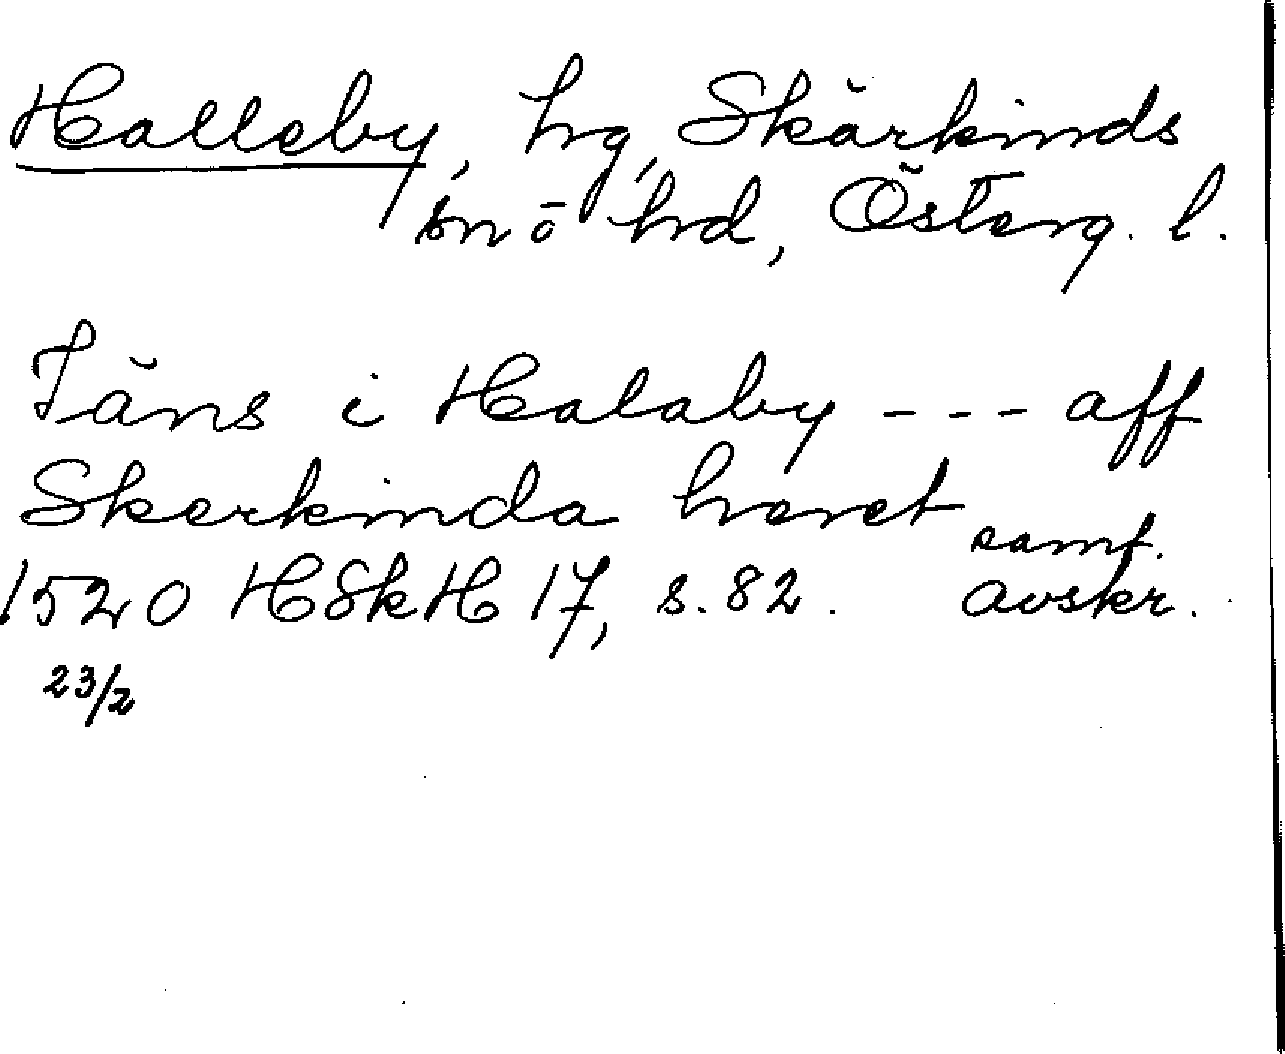 Halleby, hg, Skärkinds
sn o hd, Österg. l.
Jäns i Halaby - - - aff
Skerkinda heret
samt.
1520 HSkH 17, s. 82. avskr.
23/2